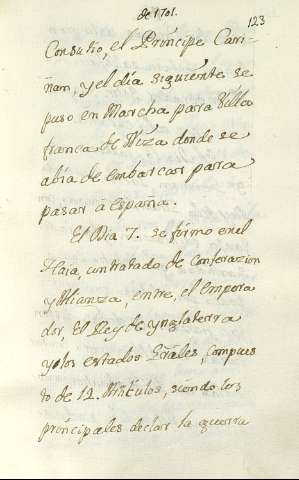 de 1701.
123
Consutio, el Príncipe Cari-
ñam, y el día siguiente se
puso en Marcha para Villa
franca de Niza donde se
abia de embarcar para
pasar á españa.
El Dia 7. se firmo en el
Haia, contratado de Conferazion
y Alianza, entre, el Empera
dor, El Rey de ynglaterra
y los estados Grãles, compues
to de 12 Artículos, siendo los
príncipales declar la guerra